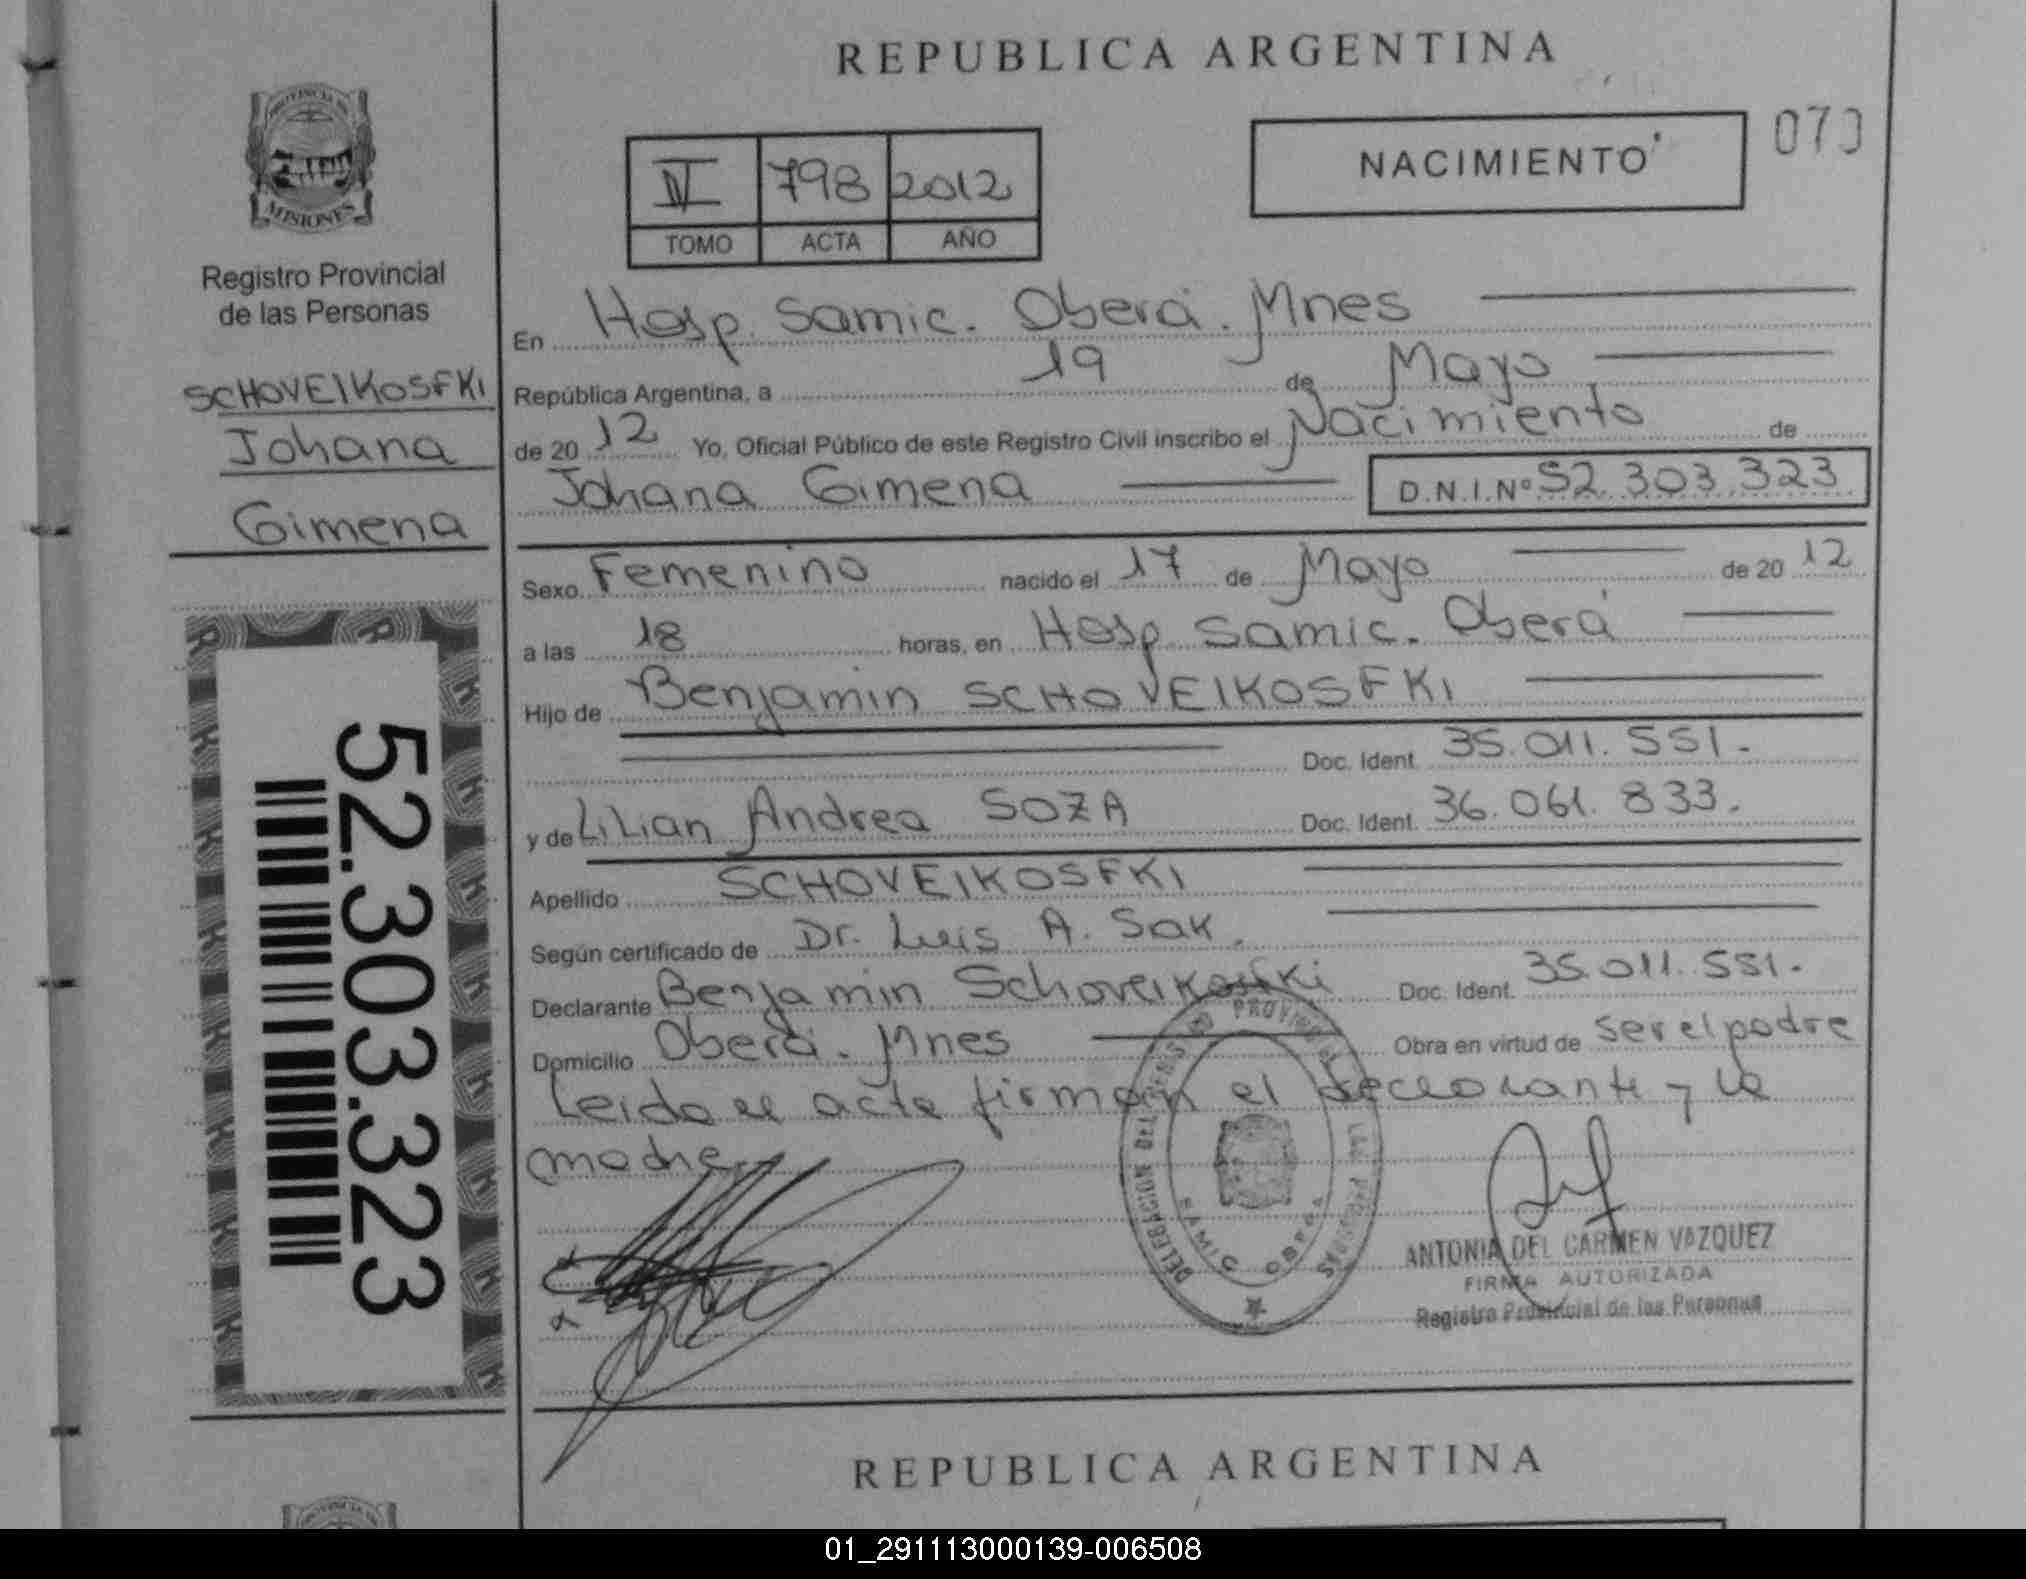 REPUBLICA ARGENTINA
NACIMIENTO
070
IV 798 2012
TOMO ACTA AÑO
PROVINCIA DE
MISIONES
Registro Provincial
de las Personas
SCHOVEIKOSFKI
Johana
Gimena
52.303.323
En Hosp. Samic. Oberá. Mnes
República Argentina, a 19 de Mayo
de 20 12 Yo, Oficial Público de este Registro Civil inscribo el Nacimiento de
Johana Gimena D.N.I.Nº 52.303.323
Sexo Femenino nacido el 17 de Mayo de 20 12
a las 18 horas, en Hosp. Samic. Oberá
Hijo de Benjamin SCHOVEIKOSFKI
Doc. Ident. 35.011.551.
y de Lilian Andrea SOZA Doc. Ident. 36.061.833.
Apellido SCHOVEIKOSFKI
Según certificado de Dr. Luis A. Sak.
Declarante Benjamin Schoveikosfki Doc. Ident. 35.011.551.
Domicilio Oberá. Mnes Obra en virtud de ser el padre
Leida el acta firman el declarante y la
madre
DELEGACION DEL REGISTRO PROVINCIAL DE LAS PERSONAS
OBERA
ANTONIA DEL CARMEN VAZQUEZ
FIRMA AUTORIZADA
Registro Provincial de las Personas
REPUBLICA ARGENTINA
01_291113000139-006508